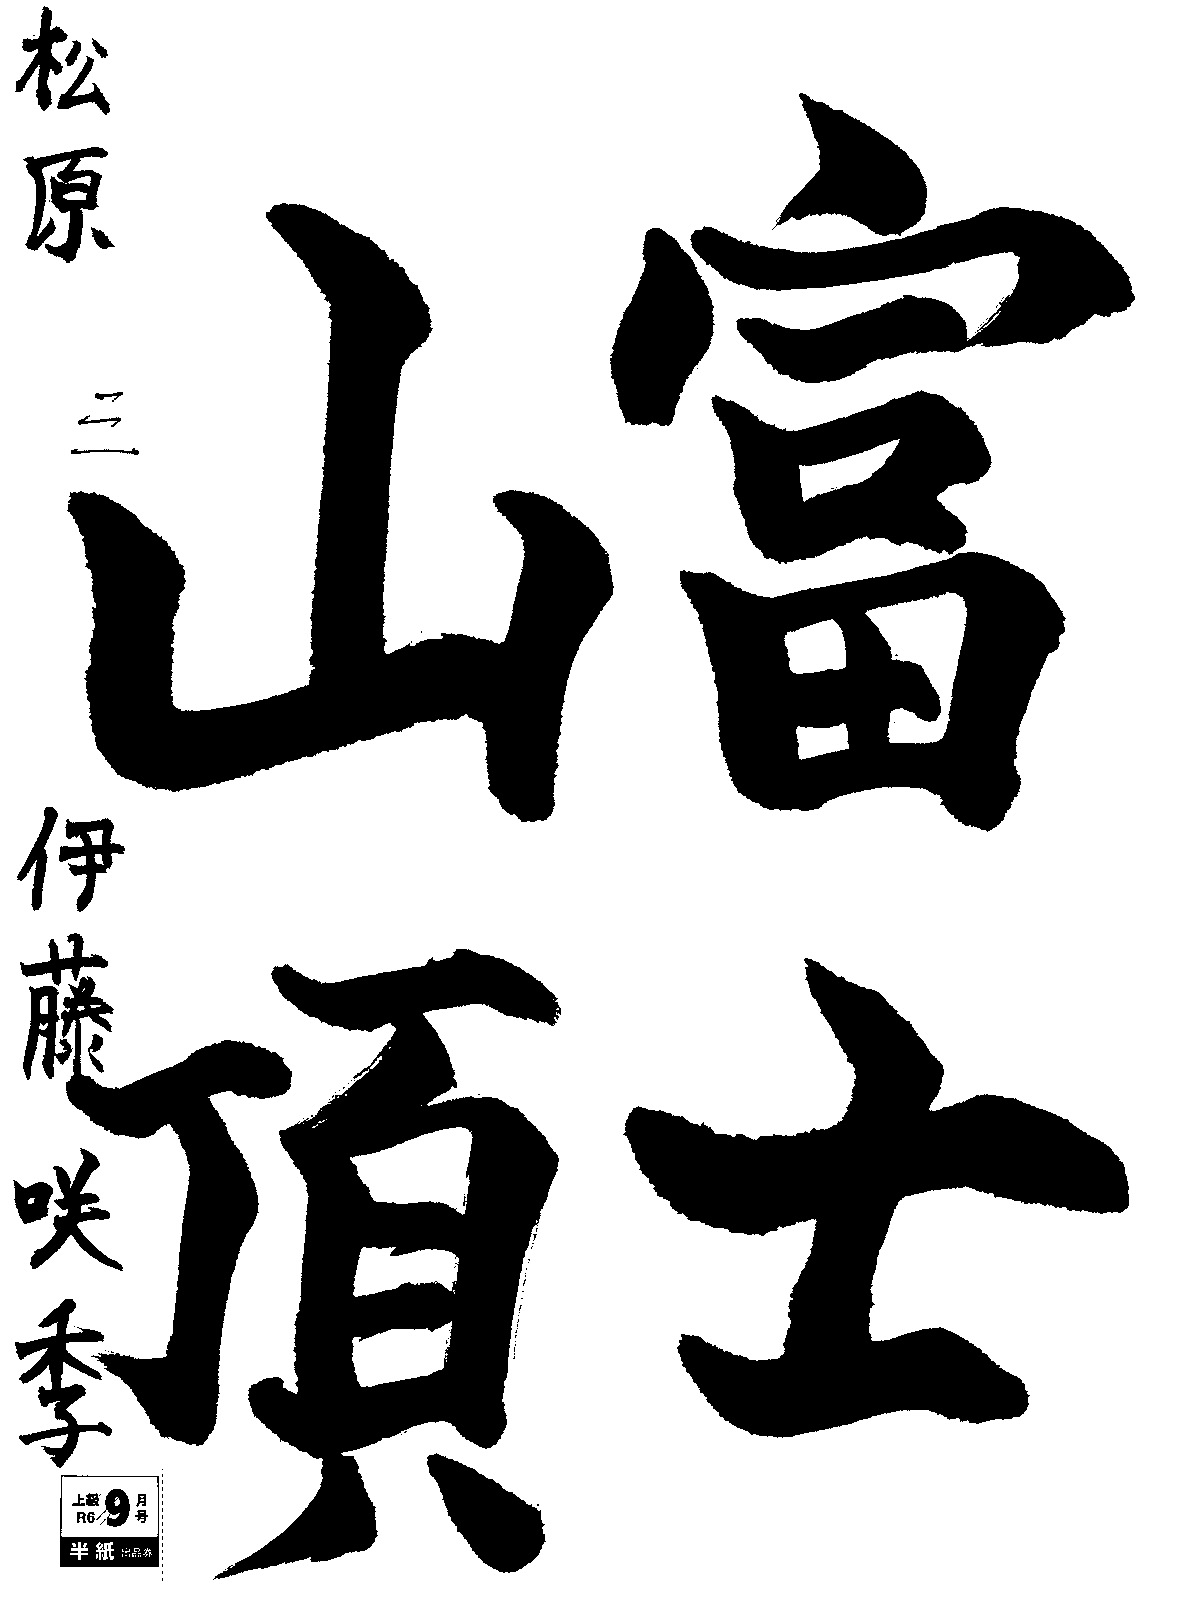 富士
山頂
松原 三 伊藤咲季
上級 R6/9月号
半紙 出品券